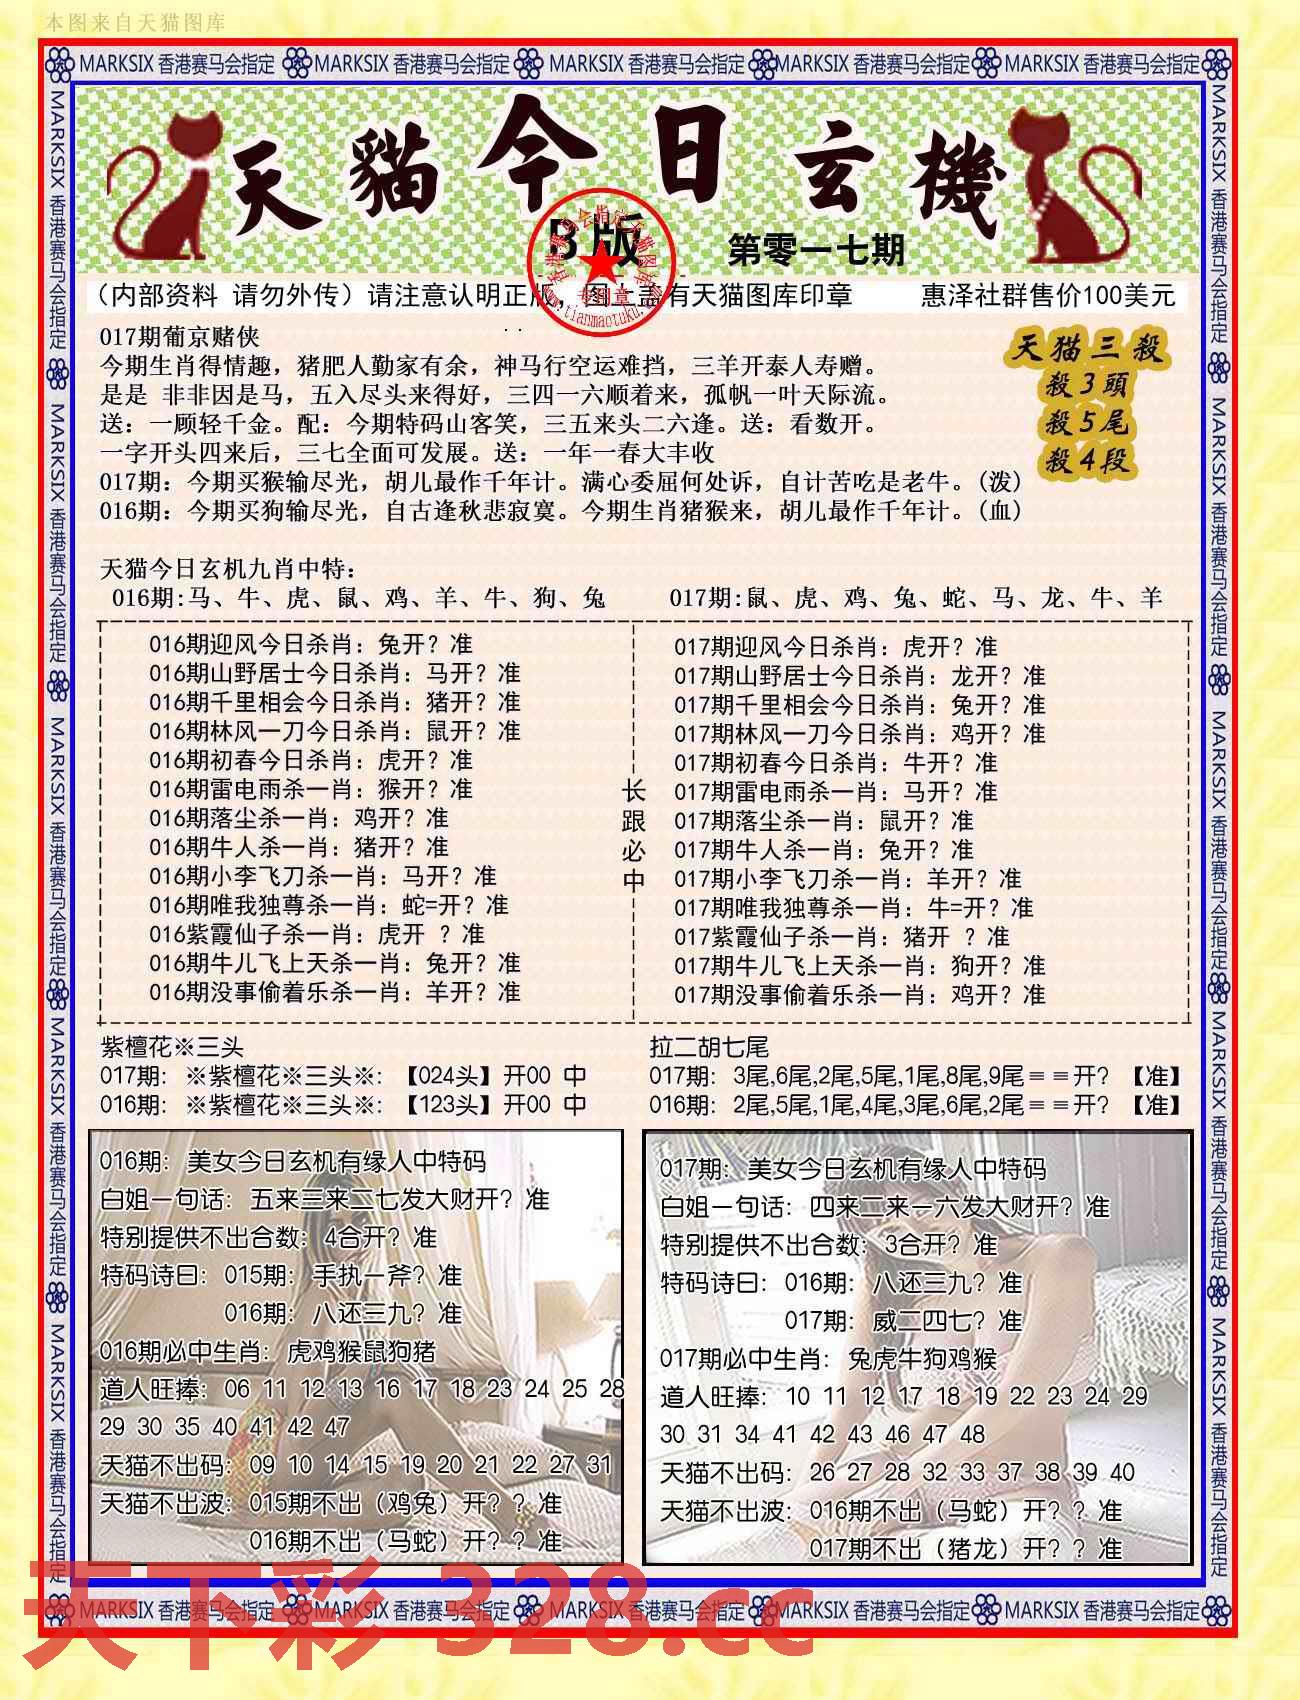 本图来自天猫图库
MARKSIX 香港赛马会指定 MARKSIX 香港赛马会指定 MARKSIX 香港赛马会指定 MARKSIX 香港赛马会指定 MARKSIX 香港赛马会指定
天貓今日玄機
B版
第零一七期
香港赛马会指定天猫图库
专用章
www.tianmaotuku.com
（内部资料 请勿外传）请注意认明正版，图上盖有天猫图库印章 惠泽社群售价100美元
017期葡京赌侠
今期生肖得情趣，猪肥人勤家有余，神马行空运难挡，三羊开泰人寿赠。
是是 非非因是马，五入尽头来得好，三四一六顺着来，孤帆一叶天际流。
送：一顾轻千金。配：今期特码山客笑，三五来头二六逢。送：看数开。
一字开头四来后，三七全面可发展。送：一年一春大丰收
017期：今期买猴输尽光，胡儿最作千年计。满心委屈何处诉，自计苦吃是老牛。(泼)
016期：今期买狗输尽光，自古逢秋悲寂寞。今期生肖猪猴来，胡儿最作千年计。(血)
天猫三殺
殺3頭
殺5尾
殺4段
天猫今日玄机九肖中特：
016期:马、牛、虎、鼠、鸡、羊、牛、狗、兔
017期:鼠、虎、鸡、兔、蛇、马、龙、牛、羊
016期迎风今日杀肖：兔开？准
016期山野居士今日杀肖：马开？准
016期千里相会今日杀肖：猪开？准
016期林风一刀今日杀肖：鼠开？准
016期初春今日杀肖：虎开？准
016期雷电雨杀一肖：猴开？准
016期落尘杀一肖：鸡开？准
016期牛人杀一肖：猪开？准
016期小李飞刀杀一肖：马开？准
016期唯我独尊杀一肖：蛇=开？准
016紫霞仙子杀一肖：虎开 ？准
016期牛儿飞上天杀一肖：兔开？准
016期没事偷着乐杀一肖：羊开？准
长
跟
必
中
017期迎风今日杀肖：虎开？准
017期山野居士今日杀肖：龙开？准
017期千里相会今日杀肖：兔开？准
017期林风一刀今日杀肖：鸡开？准
017期初春今日杀肖：牛开？准
017期雷电雨杀一肖：马开？准
017期落尘杀一肖：鼠开？准
017期牛人杀一肖：兔开？准
017期小李飞刀杀一肖：羊开？准
017期唯我独尊杀一肖：牛=开？准
017紫霞仙子杀一肖：猪开 ？准
017期牛儿飞上天杀一肖：狗开？准
017期没事偷着乐杀一肖：鸡开？准
紫檀花※三头
017期：※紫檀花※三头※：【024头】开00 中
016期：※紫檀花※三头※：【123头】开00 中
拉二胡七尾
017期：3尾,6尾,2尾,5尾,1尾,8尾,9尾≡≡开？【准】
016期：2尾,5尾,1尾,4尾,3尾,6尾,2尾≡≡开？【准】
016期：美女今日玄机有缘人中特码
白姐一句话：五来三来二七发大财开？准
特别提供不出合数：4合开？准
特码诗曰：015期：手执一斧？准
016期：八还三九？准
016期必中生肖：虎鸡猴鼠狗猪
道人旺捧：06 11 12 13 16 17 18 23 24 25 28
29 30 35 40 41 42 47
天猫不出码：09 10 14 15 19 20 21 22 27 31
天猫不出波：015期不出（鸡兔）开？？准
016期不出（马蛇）开？？准
017期：美女今日玄机有缘人中特码
白姐一句话：四来二来一六发大财开？准
特别提供不出合数：3合开？准
特码诗曰：016期：八还三九？准
017期：威二四七？准
017期必中生肖：兔虎牛狗鸡猴
道人旺捧：10 11 12 17 18 19 22 23 24 29
30 31 34 41 42 43 46 47 48
天猫不出码：26 27 28 32 33 37 38 39 40
天猫不出波：016期不出（马蛇）开？？准
017期不出（猪龙）开？？准
MARKSIX 香港赛马会指定 MARKSIX 香港赛马会指定 MARKSIX 香港赛马会指定 MARKSIX 香港赛马会指定 MARKSIX 香港赛马会指定
MARKSIX 香港赛马会指定 MARKSIX 香港赛马会指定 MARKSIX 香港赛马会指定 MARKSIX 香港赛马会指定 MARKSIX 香港赛马会指定
MARKSIX 香港赛马会指定 MARKSIX 香港赛马会指定 MARKSIX 香港赛马会指定 MARKSIX 香港赛马会指定 MARKSIX 香港赛马会指定
天下彩 328.cc